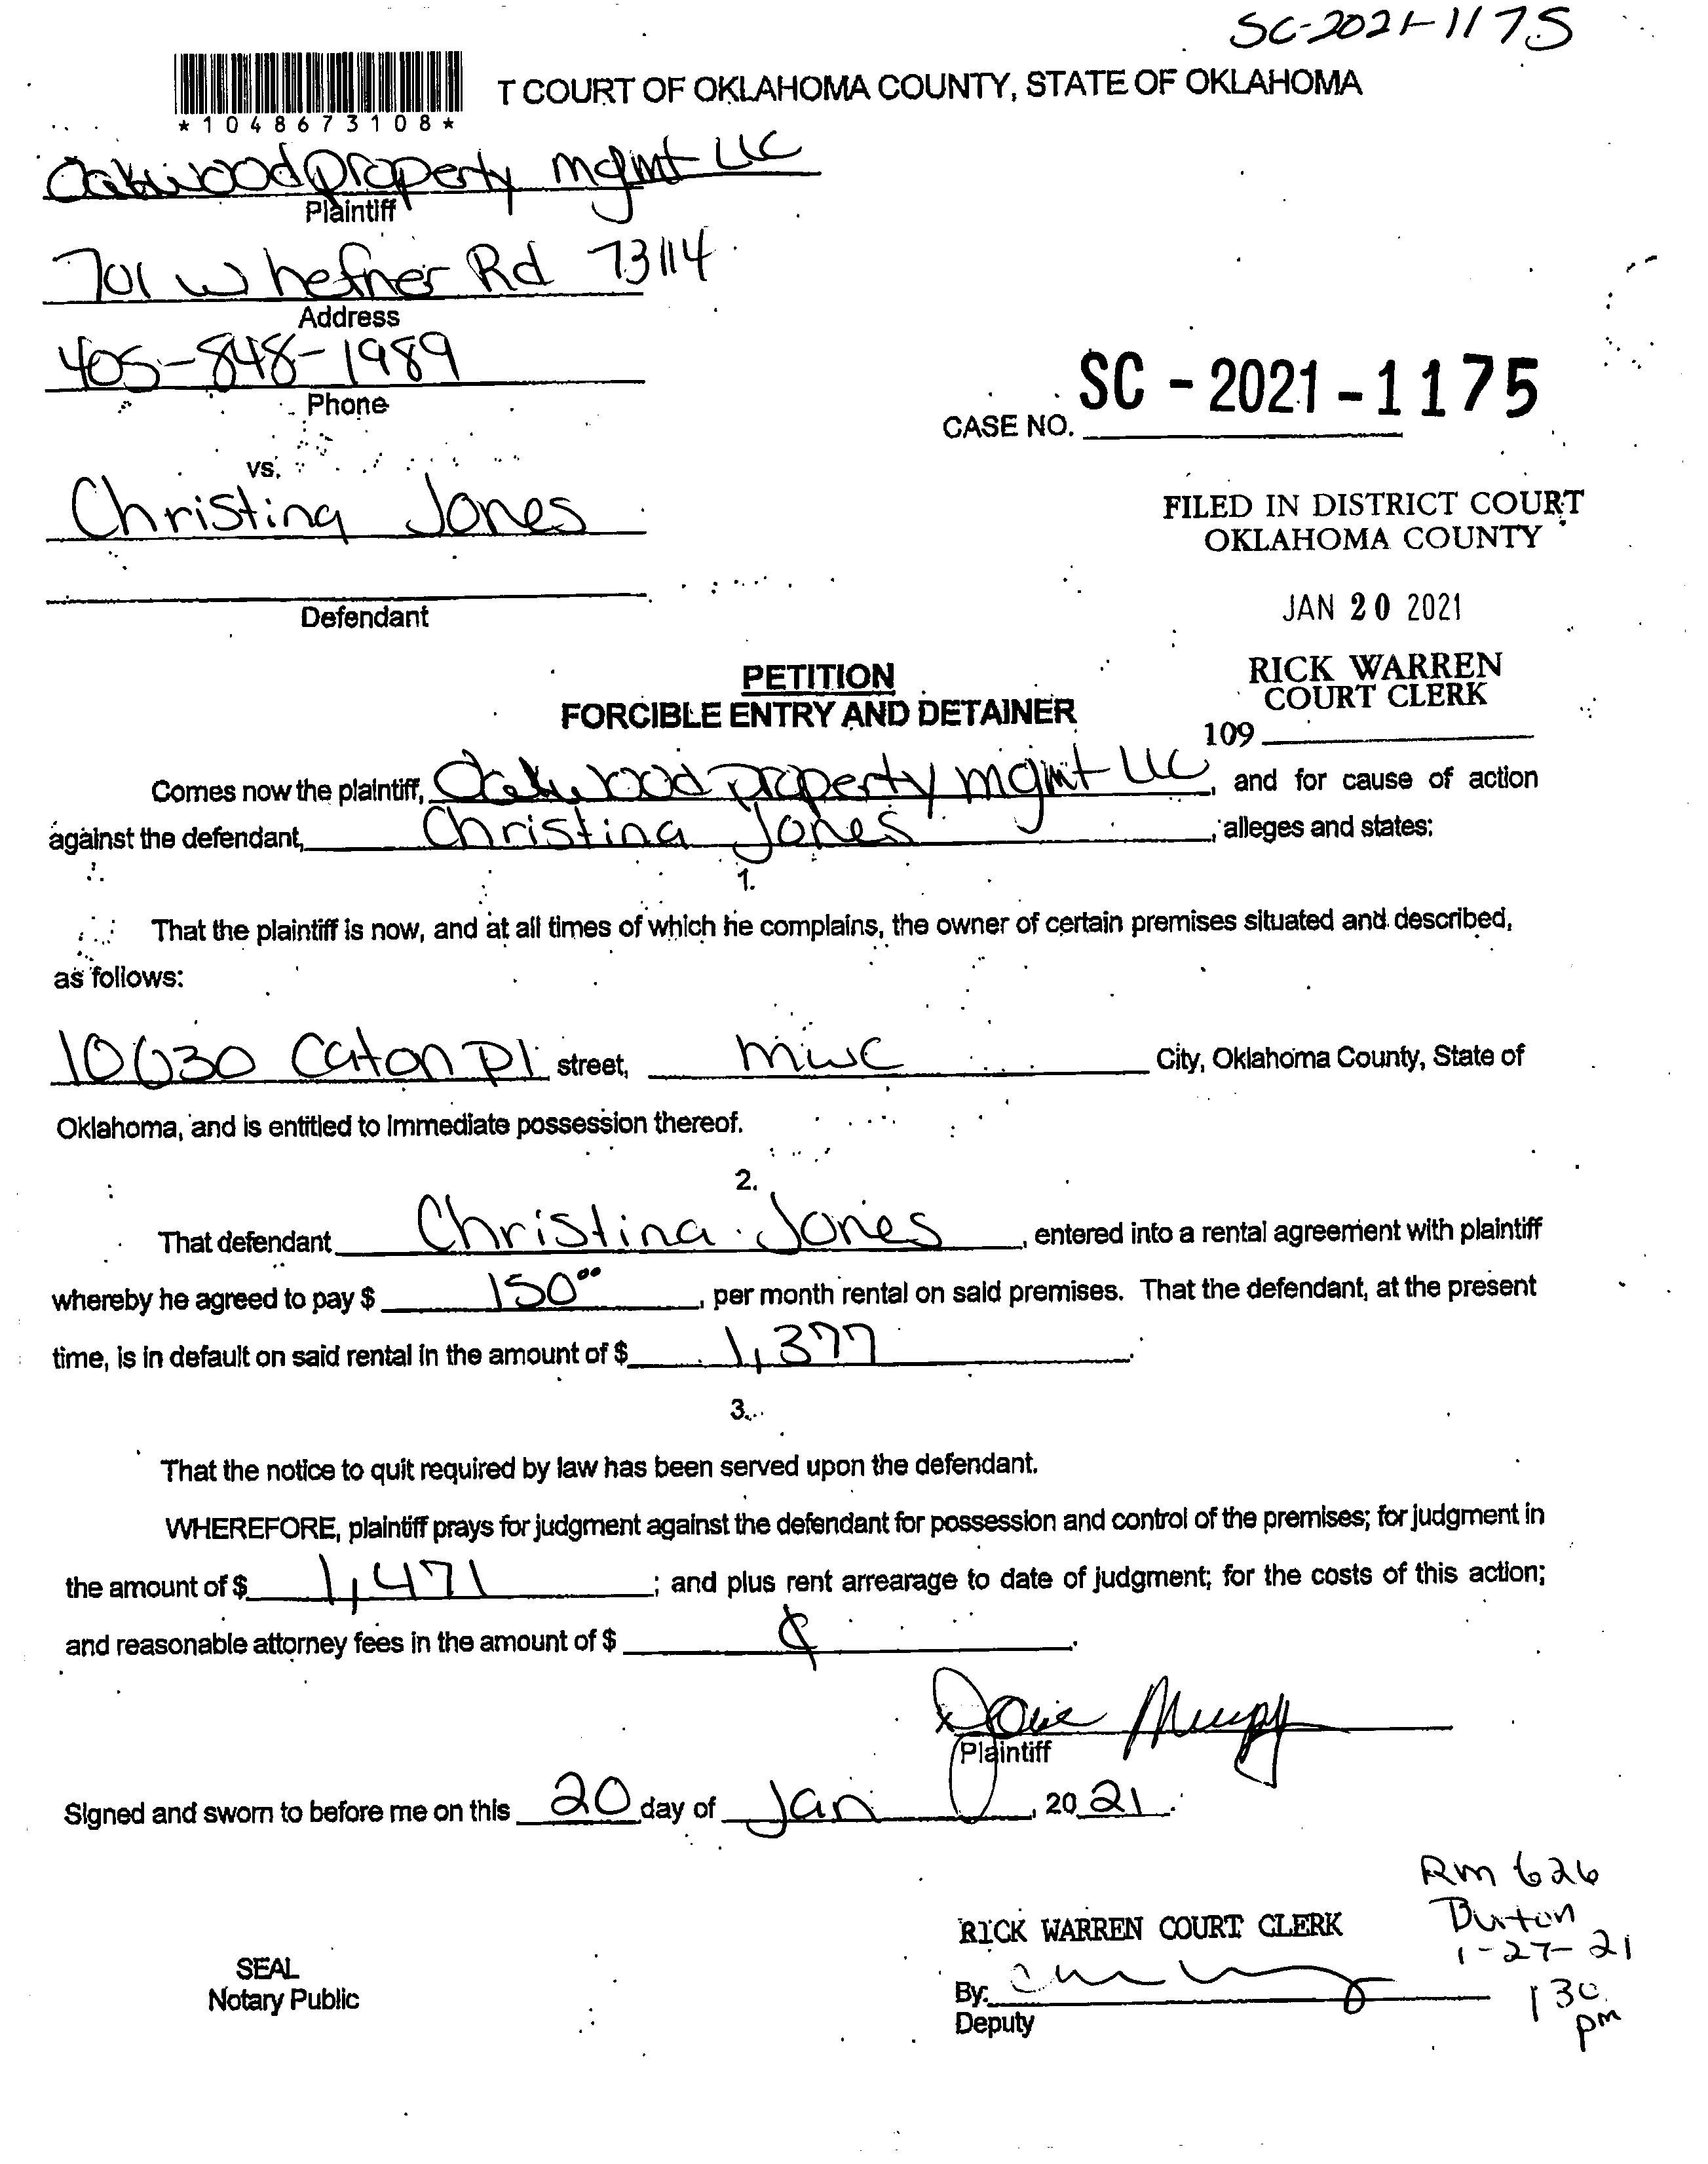 SC-2021-1175
T COURT OF OKLAHOMA COUNTY, STATE OF OKLAHOMA
*1048673108*
Oakwood property mgmt LLC
Plaintiff
701 W hefner Rd 73114
Address
405-848-1989
Phone
CASE NO. SC-2021-1175
vs.
Christina Jones
Defendant
FILED IN DISTRICT COURT
OKLAHOMA COUNTY
JAN 20 2021
RICK WARREN
COURT CLERK
109
PETITION
FORCIBLE ENTRY AND DETAINER
Comes now the plaintiff, Oakwood property mgmt LLC, and for cause of action
against the defendant, Christina Jones, alleges and states:
1.
That the plaintiff is now, and at all times of which he complains, the owner of certain premises situated and described,
as follows:
10630 Caton Pl street, mwc City, Oklahoma County, State of
Oklahoma, and is entitled to immediate possession thereof.
2.
That defendant Christina Jones, entered into a rental agreement with plaintiff
whereby he agreed to pay $ 150.00, per month rental on said premises. That the defendant, at the present
time, is in default on said rental in the amount of $ 1,377.
3.
That the notice to quit required by law has been served upon the defendant.
WHEREFORE, plaintiff prays for judgment against the defendant for possession and control of the premises; for judgment in
the amount of $ 1,471; and plus rent arrearage to date of judgment; for the costs of this action;
and reasonable attorney fees in the amount of $
Plaintiff
Signed and sworn to before me on this 20 day of Jan, 2021.
Rm 626
1-27-21
130
pm
RICK WARREN COURT CLERK
By:
Deputy
SEAL
Notary Public